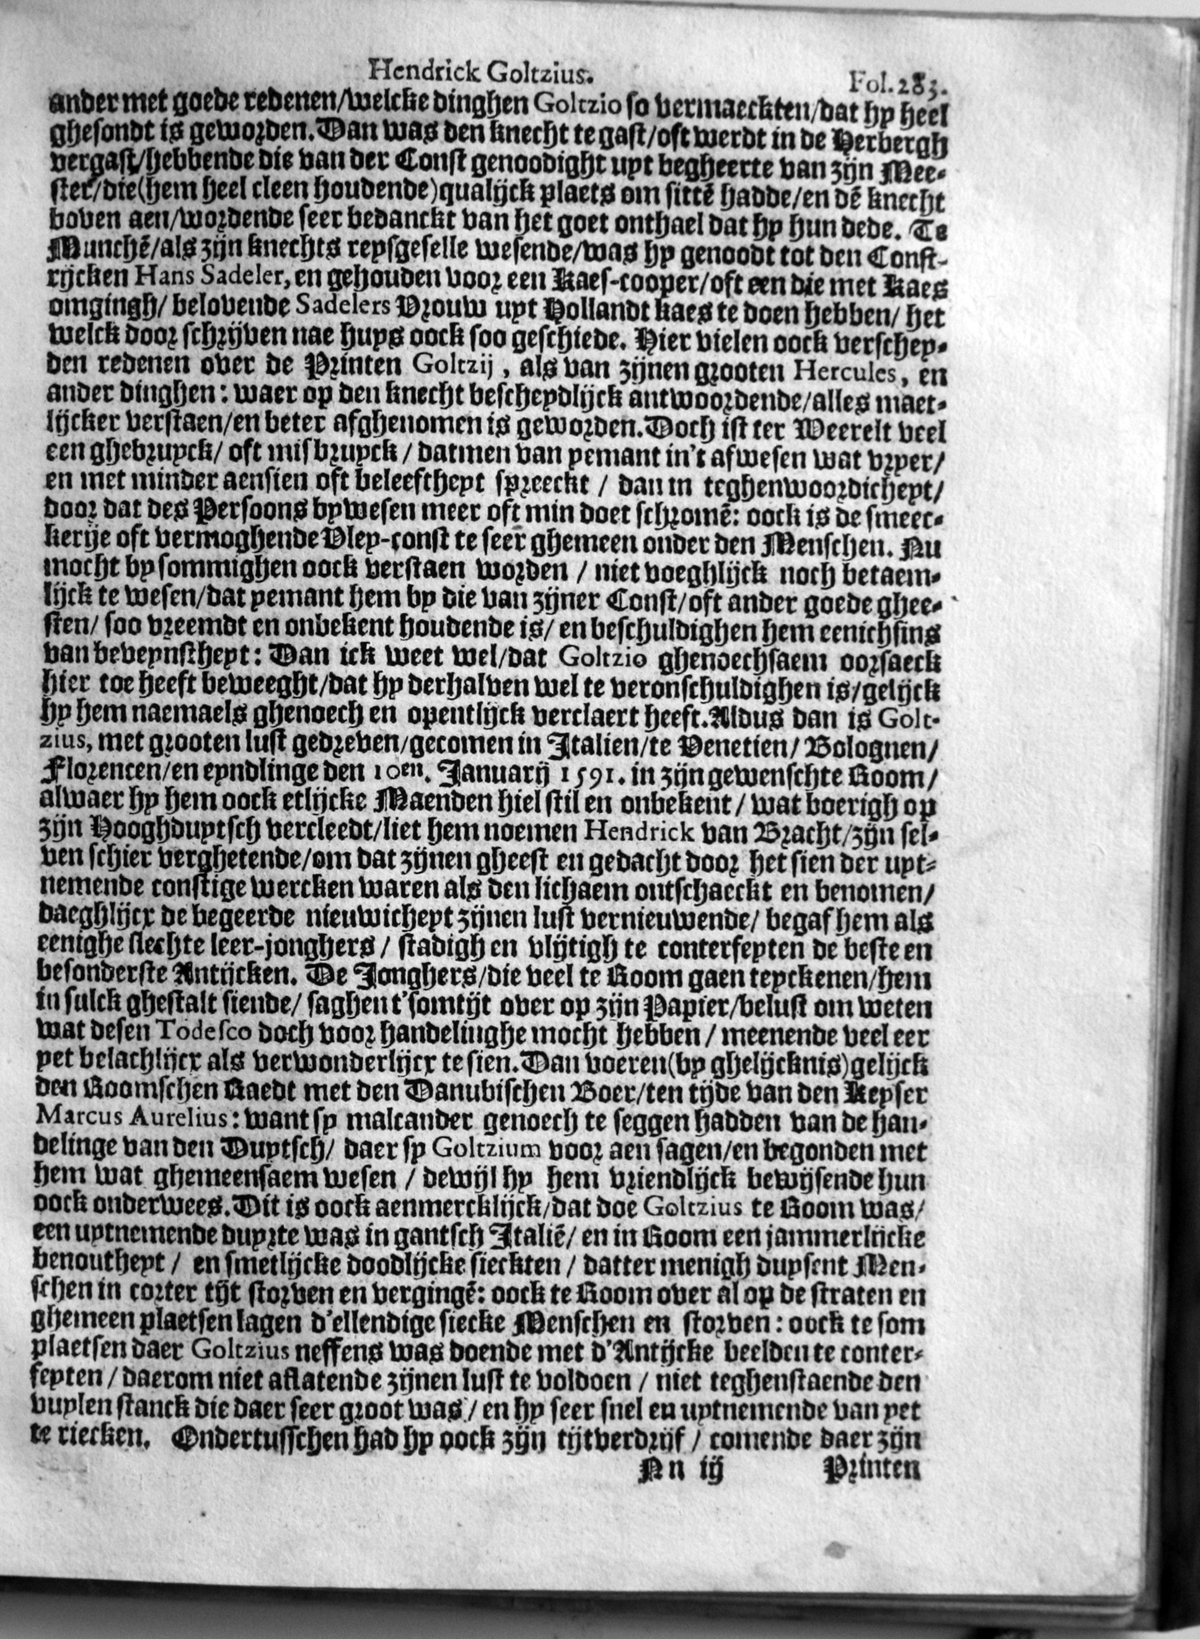 Hendrick Goltzius. Fol. 283.
ander met goede redenen/welcke dinghen Goltzio so vermaeckten/dat hy heel
ghesondt is geworden. Dan was den knecht te gast/oft werdt in de Herbergh
vergast/hebbende die van der Const genoodight uyt begheerte van zijn Mee-
ster/die (hem heel cleen houdende) qualijck plaets om sittē hadde/en dē knecht
boven aen/wordende seer bedanckt van het goet onthael dat hy hun dede. Te
Munchē/als zijn knechts reysgeselle wesende/was hy genoodt tot den Const-
rijcken Hans Sadeler, en gehouden voor een Kaes-cooper/oft een die met Kaes
omgingh/belovende Sadelers Vrouw uyt Hollandt kaes te doen hebben/het
welck door schrijven nae huys oock soo geschiede. Hier vielen oock verschey-
den redenen over de Printen Goltzij, als van zijnen grooten Hercules, en
ander dinghen: waer op den knecht bescheydlijck antwoordende/alles maet-
lijcker verstaen/en beter afghenomen is geworden. Doch ist ter Weerelt veel
een ghebruyck/oft misbruyck/datmen van yemant in't afwesen wat vryer/
en met minder aensien oft beleeftheyt spreeckt/dan in teghenwoordicheyt/
door dat des Persoons bywesen meer oft min doet schromē: oock is de smeec-
kerije oft vermoghende Vley-const te seer ghemeen onder den Menschen. Nu
mocht by sommighen oock verstaen worden/niet voeghlijck noch betaem-
lijck te wesen/dat yemant hem by die van zijner Const/oft ander goede ghee-
sten/soo vreemdt en onbekent houdende is/en beschuldighen hem eenichsins
van beveynstheyt: Dan ick weet wel/dat Goltzio ghenoechsaem oorsaeck
hier toe heeft beweeght/dat hy derhalven wel te veronschuldighen is/gelijck
hy hem naemaels ghenoech en opentlijck verclaert heeft. Aldus dan is Golt-
zius, met grooten lust gedreven/gecomen in Italien/te Venetien/Bolognen/
Florencen/en eyndlinge den 10en. Januarij 1591. in zijn gewenschte Room/
alwaer hy hem oock etlijcke Maenden hiel stil en onbekent/wat boerigh op
zijn Hooghduytsch vercleedt/liet hem noemen Hendrick van Bracht/zijn sel-
ven schier verghetende/om dat zijnen gheest en gedacht door het sien der uyt-
nemende constige wercken waren als den lichaem ontschaeckt en benomen/
daeghlijcx de begeerde nieuwicheyt zijnen lust vernieuwende/begaf hem als
eenighe slechte leer-jonghers/stadigh en vlijtigh te conterfeyten de beste en
besonderste Antijcken. De Jonghers/die veel te Room gaen teyckenen/hem
in sulck ghestalt siende/saghen t'somtijt over op zijn Papier/belust om weten
wat desen Todesco doch voor handelinghe mocht hebben/meenende veel eer
yet belachlijcx als verwonderlijcx te sien. Dan voeren (by ghelijcknis) gelijck
den Roomschen Raedt met den Danubischen Boer/ten tijde van den Keyser
Marcus Aurelius: want sy malcander genoech te seggen hadden van de han-
delinge van den Duytsch/daer sy Goltzium voor aen sagen/en begonden met
hem wat ghemeensaem wesen/dewijl hy hem vriendlijck bewijsende hun
oock onderwees. Dit is oock aenmercklijck/dat doe Goltzius te Room was/
een uytnemende duyrte was in gantsch Italiē/en in Room een jammerlijcke
benoutheyt/en smetlijcke doodlijcke sieckten/datter menigh duysent Men-
schen in corter tijt storven en vergingē: oock te Room over al op de straten en
ghemeen plaetsen lagen d'ellendige siecke Menschen en storven: oock te som
plaetsen daer Goltzius neffens was doende met d'Antijcke beelden te conter-
feyten/daerom niet aflatende zijnen lust te voldoen/niet teghenstaende den
vuylen stanck die daer seer groot was/en hy seer snel en uytnemende van yet
te riecken. Ondertusschen had hy oock zijn tijtverdrijf/comende daer zijn
Nn ij Printen